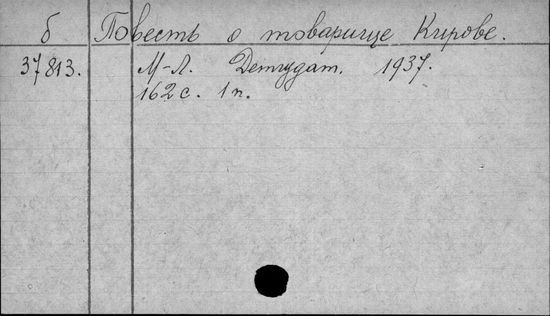 б Повесть о товарище Кирове.
37813. М-Л. Детиздат. 1937.
162 с. 1 п.